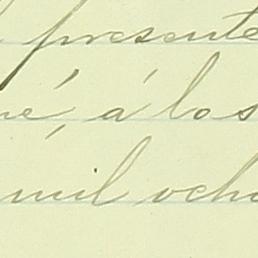 presente
né, á los
mil ocho